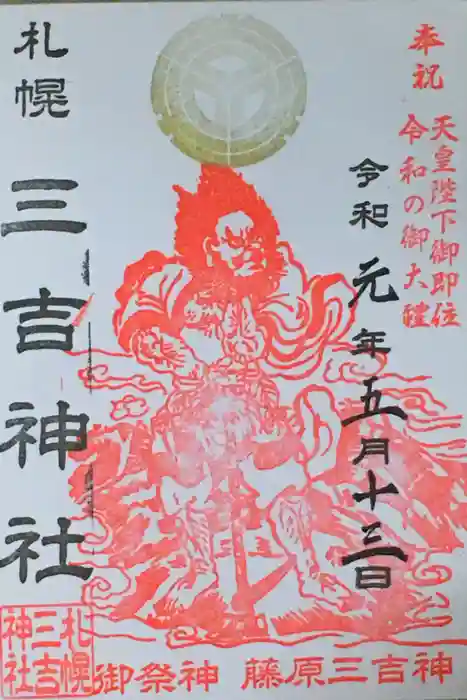 奉祝
天皇陛下御即位
令和の御大禮
令和元年五月十三日
札幌
三吉神社
札幌
三吉
神社
御祭神 藤原三吉神